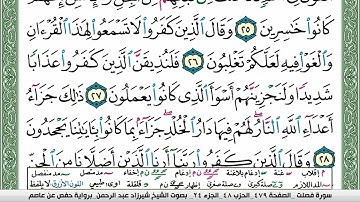 كَانُوا۟ خَـٰسِرِينَ ٢٥ وَقَالَ ٱلَّذِينَ كَفَرُوا۟ لَا تَسْمَعُوا۟ لِهَـٰذَا ٱلْقُرْءَانِ
وَٱلْغَوْا۟ فِيهِ لَعَلَّكُمْ تَغْلِبُونَ ٢٦ فَلَنُذِيقَنَّ ٱلَّذِينَ كَفَرُوا۟ عَذَابًا
شَدِيدًا وَلَنَجْزِيَنَّهُمْ أَسْوَأَ ٱلَّذِى كَانُوا۟ يَعْمَلُونَ ٢٧ ذَٰلِكَ جَزَآءُ
أَعْدَآءِ ٱللَّهِ ٱلنَّارُ لَهُمْ فِيهَا دَارُ ٱلْخُلْدِ جَزَآءًۢ بِمَا كَانُوا۟ بِـَٔايَـٰتِنَا يَجْحَدُونَ
٢٨ وَقَالَ ٱلَّذِينَ كَفَرُوا۟ رَبَّنَآ أَرِنَا ٱلَّذَيْنِ أَضَلَّانَا مِنَ ٱلْجِنِّ
سورة فصلت الصفحة ٤٧٩ الحزب ٤٨ الجزء ٢٤ بصوت الشيخ شيرزاد عبد الرحمن برواية حفص عن عاصم